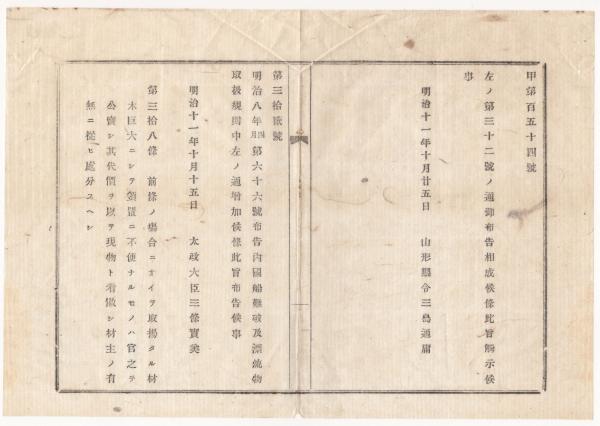 甲第百五十四號
左ノ第三十二號ノ通御布告相成候條此旨觸示候
事
明治十一年十月廿五日　山形縣令三島通庸
第三拾貳號
明治八年四月第六十六號布告内國船難破及漂流物
取扱規則中左ノ通增加候條此旨布告候事
明治十一年十月十五日　太政大臣三條實美
第三拾八條　前條ノ場合ニオイテ取揚タル材
木巨大ニシテ領置ニ不便ナルモノハ官之ヲ
公賣シ其代價ヲ以テ現物ト看做シ材主ノ有
無ニ從ヒ處分スヘシ